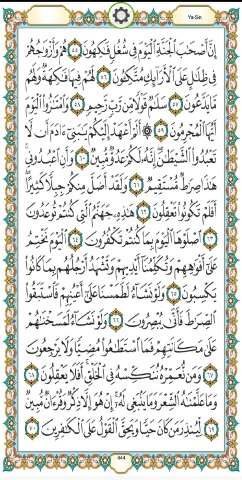 Ya-Sin
إِنَّ أَصْحَٰبَ ٱلْجَنَّةِ ٱلْيَوْمَ فِى شُغُلٍ فَٰكِهُونَ ٥٥ هُمْ وَأَزْوَٰجُهُمْ
فِى ظِلَٰلٍ عَلَى ٱلْأَرَآئِكِ مُتَّكِـُٔونَ ٥٦ لَهُمْ فِيهَا فَٰكِهَةٌ وَلَهُم
مَّا يَدَّعُونَ ٥٧ سَلَٰمٌ قَوْلًا مِّن رَّبٍّ رَّحِيمٍ ٥٨ وَٱمْتَٰزُوا۟ ٱلْيَوْمَ
أَيُّهَا ٱلْمُجْرِمُونَ ٥٩ ۞ أَلَمْ أَعْهَدْ إِلَيْكُمْ يَٰبَنِىٓ ءَادَمَ أَن لَّا
تَعْبُدُوا۟ ٱلشَّيْطَٰنَ ۖ إِنَّهُۥ لَكُمْ عَدُوٌّ مُّبِينٌ ٦٠ وَأَنِ ٱعْبُدُونِى ۚ
هَٰذَا صِرَٰطٌ مُّسْتَقِيمٌ ٦١ وَلَقَدْ أَضَلَّ مِنكُمْ جِبِلًّا كَثِيرًا ۖ
أَفَلَمْ تَكُونُوا۟ تَعْقِلُونَ ٦٢ هَٰذِهِۦ جَهَنَّمُ ٱلَّتِى كُنتُمْ تُوعَدُونَ
٦٣ ٱصْلَوْهَا ٱلْيَوْمَ بِمَا كُنتُمْ تَكْفُرُونَ ٦٤ ٱلْيَوْمَ نَخْتِمُ
عَلَىٰٓ أَفْوَٰهِهِمْ وَتُكَلِّمُنَآ أَيْدِيهِمْ وَتَشْهَدُ أَرْجُلُهُم بِمَا كَانُوا۟
يَكْسِبُونَ ٦٥ وَلَوْ نَشَآءُ لَطَمَسْنَا عَلَىٰٓ أَعْيُنِهِمْ فَٱسْتَبَقُوا۟
ٱلصِّرَٰطَ فَأَنَّىٰ يُبْصِرُونَ ٦٦ وَلَوْ نَشَآءُ لَمَسَخْنَٰهُمْ
عَلَىٰ مَكَانَتِهِمْ فَمَا ٱسْتَطَٰعُوا۟ مُضِيًّا وَلَا يَرْجِعُونَ
٦٧ وَمَن نُّعَمِّرْهُ نُنَكِّسْهُ فِى ٱلْخَلْقِ ۖ أَفَلَا يَعْقِلُونَ ٦٨
وَمَا عَلَّمْنَٰهُ ٱلشِّعْرَ وَمَا يَنۢبَغِى لَهُۥٓ ۚ إِنْ هُوَ إِلَّا ذِكْرٌ وَقُرْءَانٌ مُّبِينٌ
٦٩ لِّيُنذِرَ مَن كَانَ حَيًّا وَيَحِقَّ ٱلْقَوْلُ عَلَى ٱلْكَٰفِرِينَ ٧٠
444